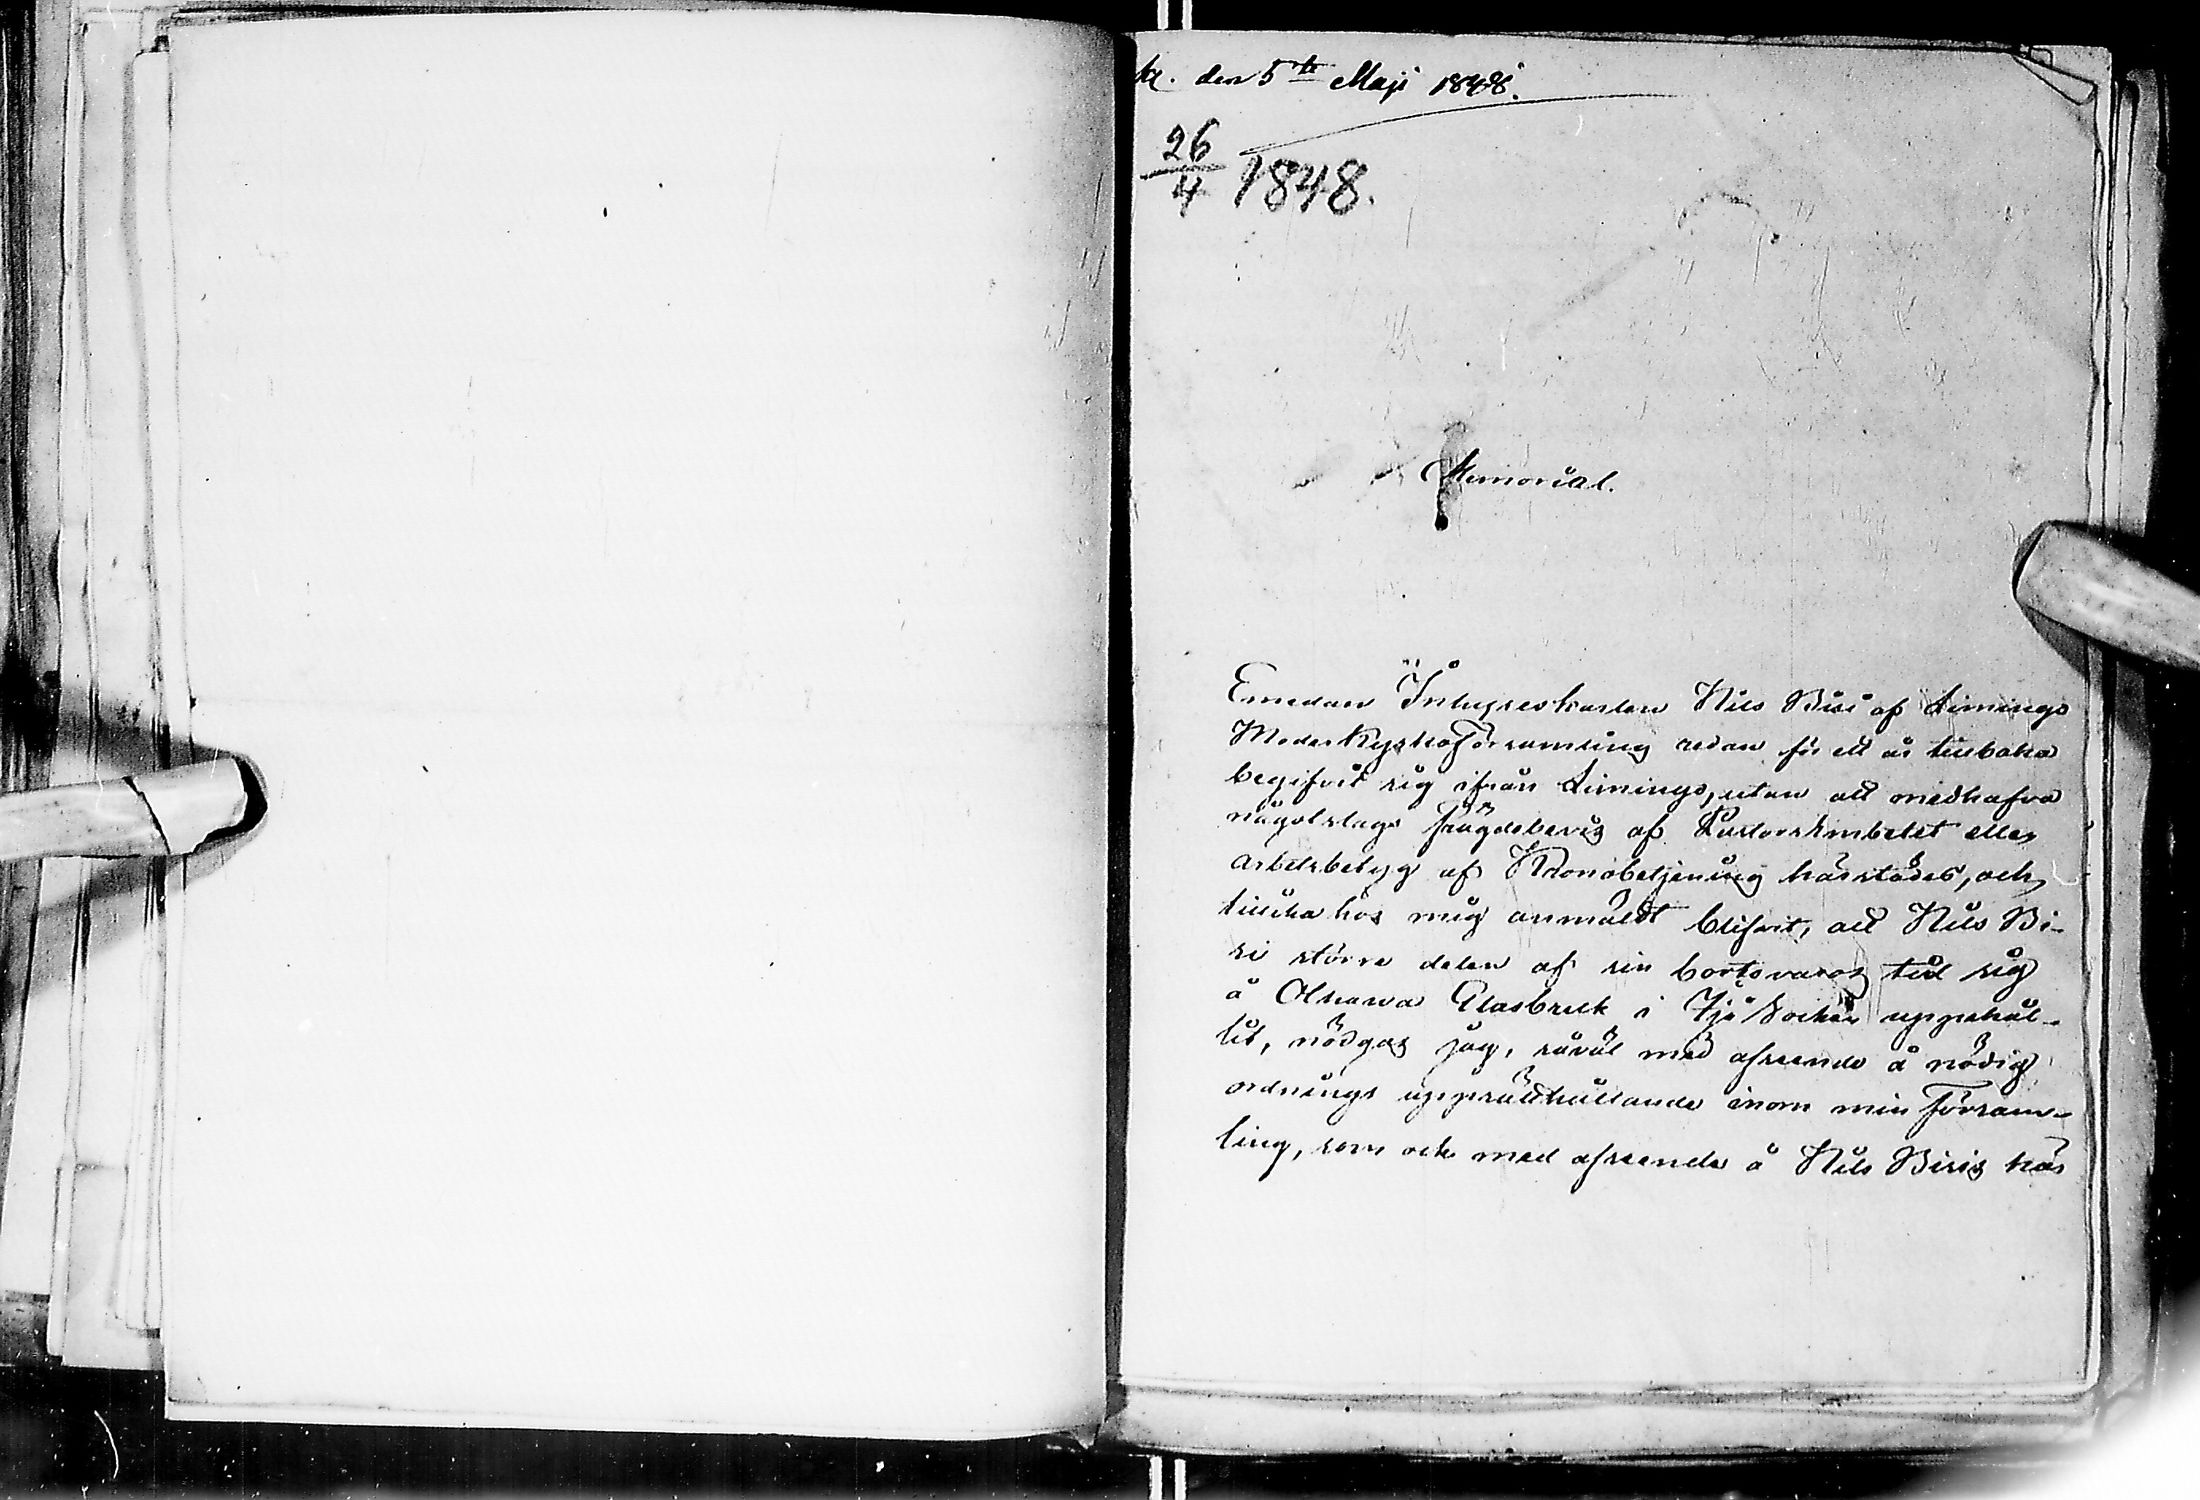 den 5te Maji 1848.
26/4 1848.
Memorial.
Emedan Inhyseskarlen Nils Bisi af Limingo
Moderkyrkoförsamling redan för ett år tillbaka
begifvit sig ifrån Limingo, utan att medhafva
någotslags frägdebevis af Pastorsembetet eller
arbetsbetyg af Kronobetjening härstädes, och
tillika hos mig anmäldt blifvit, att Nils Bi-
si större delen af sin bortovaros tid sig
å Olhava Glasbruk i Ijo Socken uppehål-
lit, nödgas jag, såväl med afseende å nödig
ordnings upprätthållande inom min Försam-
ling, som ock med afseende å Nils Bisis här